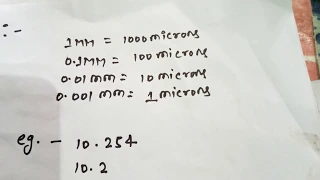 :-
1MM = 1000 microns
0.1MM = 100 microns
0.01 mm = 10 microns
0.001 mm = 1 microns
eg. - 10.254
10.2